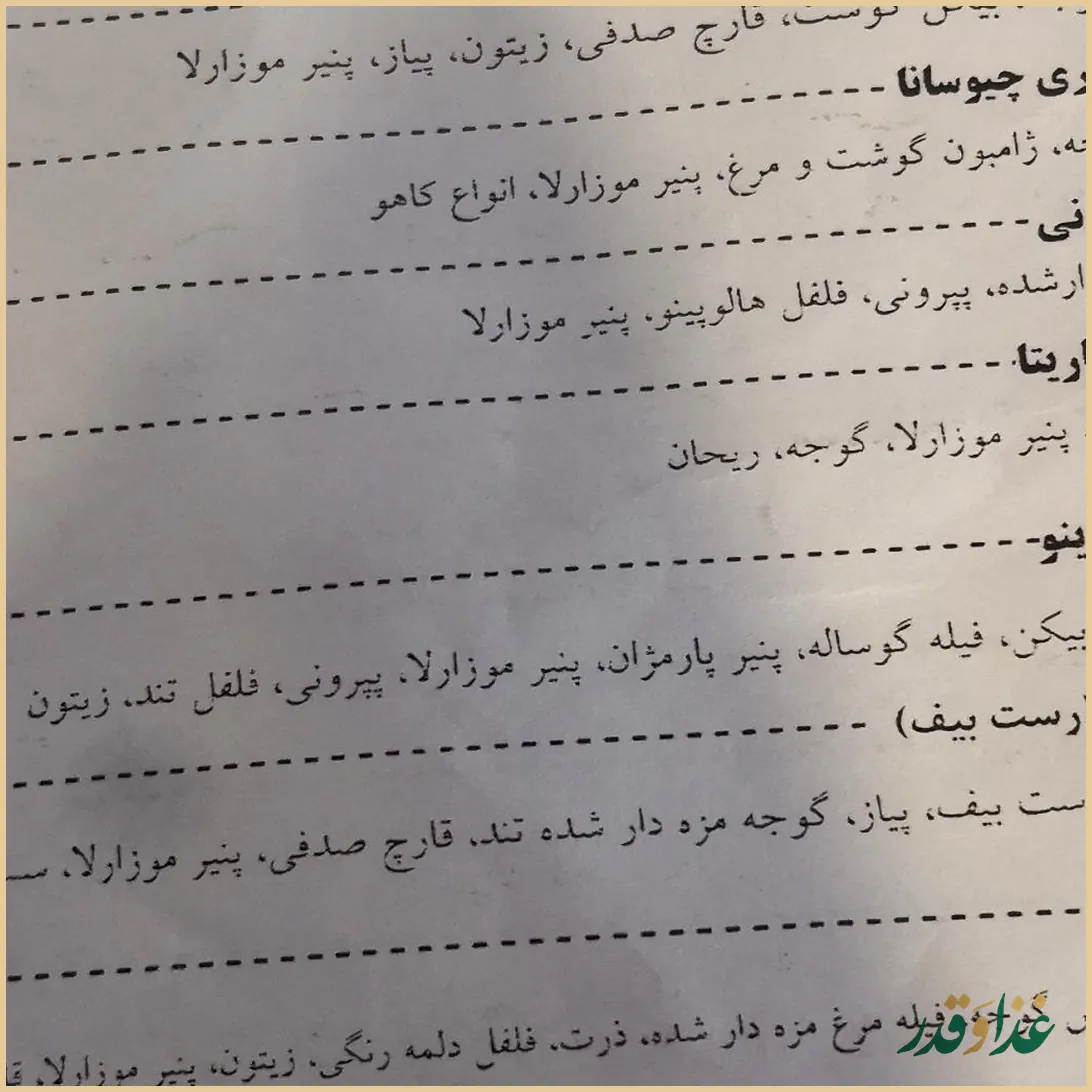 بیکن گوشت، قارچ صدفی، زیتون، پیاز، پنیر موزارلا
ری چیوسانا
ژامبون گوشت و مرغ، پنیر موزارلا، انواع کاهو
نی
ارشده، پپرونی، فلفل هالوپینو، پنیر موزارلا
اریتا
پنیر موزارلا، گوجه، ریحان
ینو
بیکن، فیله گوساله، پنیر پارمژان، پنیر موزارلا، پپرونی، فلفل تند، زیتون
(رست بیف)
ست بیف، پیاز، گوجه مزه دار شده تند، قارچ صدفی، پنیر موزارلا، سـ
گوجه، فیله مرغ مزه دار شده، ذرت، فلفل دلمه رنگی، زیتون، پنیر موزارلا، قا
غذا و قدر